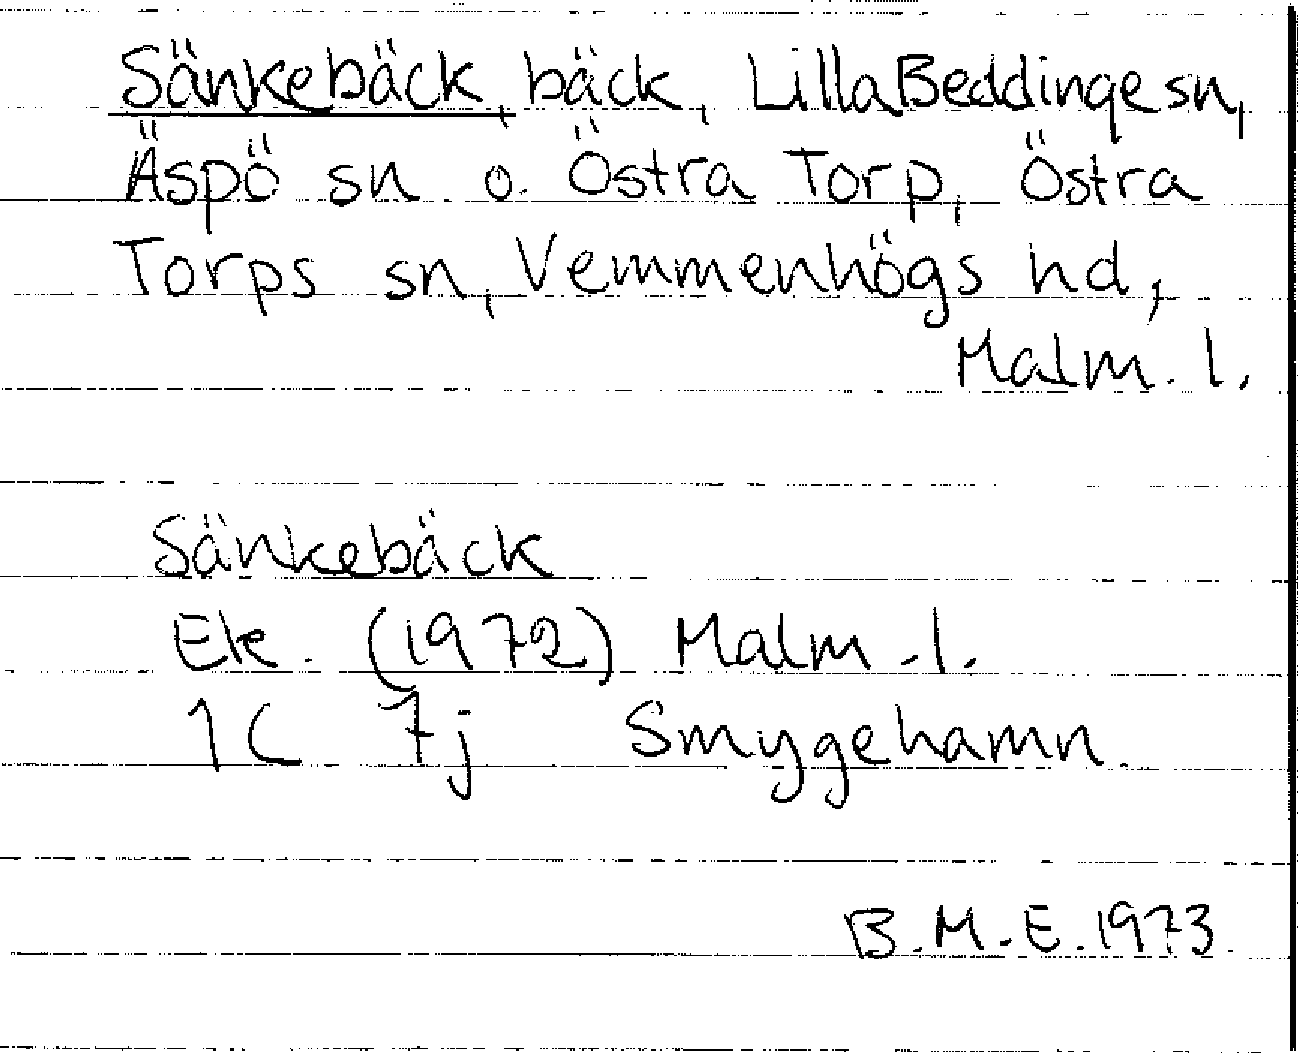 Sänkebäck, bäck, Lilla Beddinge sn,
Äspö sn o. Östra Torp, Östra
Torps sn, Vemmenhögs hd,
Malm. l.
Sänkebäck
Ek. (1972) Malm. l.
1C 7j Smygehamn.
B.M.E. 1973.